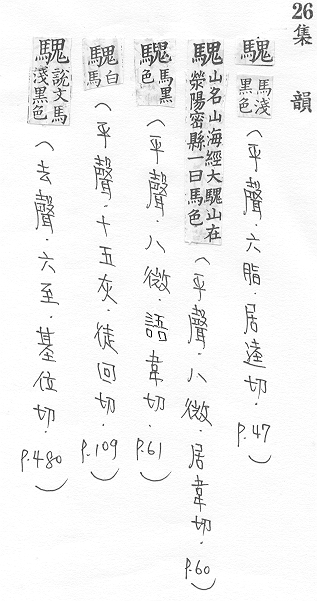 26集韻
騩 馬淺黑色（平聲．六脂．居逵切．P.47）
騩 山名山海經大騩山在滎陽密縣一曰馬色（平聲．八微．居韋切．P.60）
騩 馬黑色（平聲．八微．語韋切．P.61）
騩 白馬（平聲．十五灰．徒回切．P.109）
騩 說文馬淺黑色（去聲．六至．基位切．P.480）